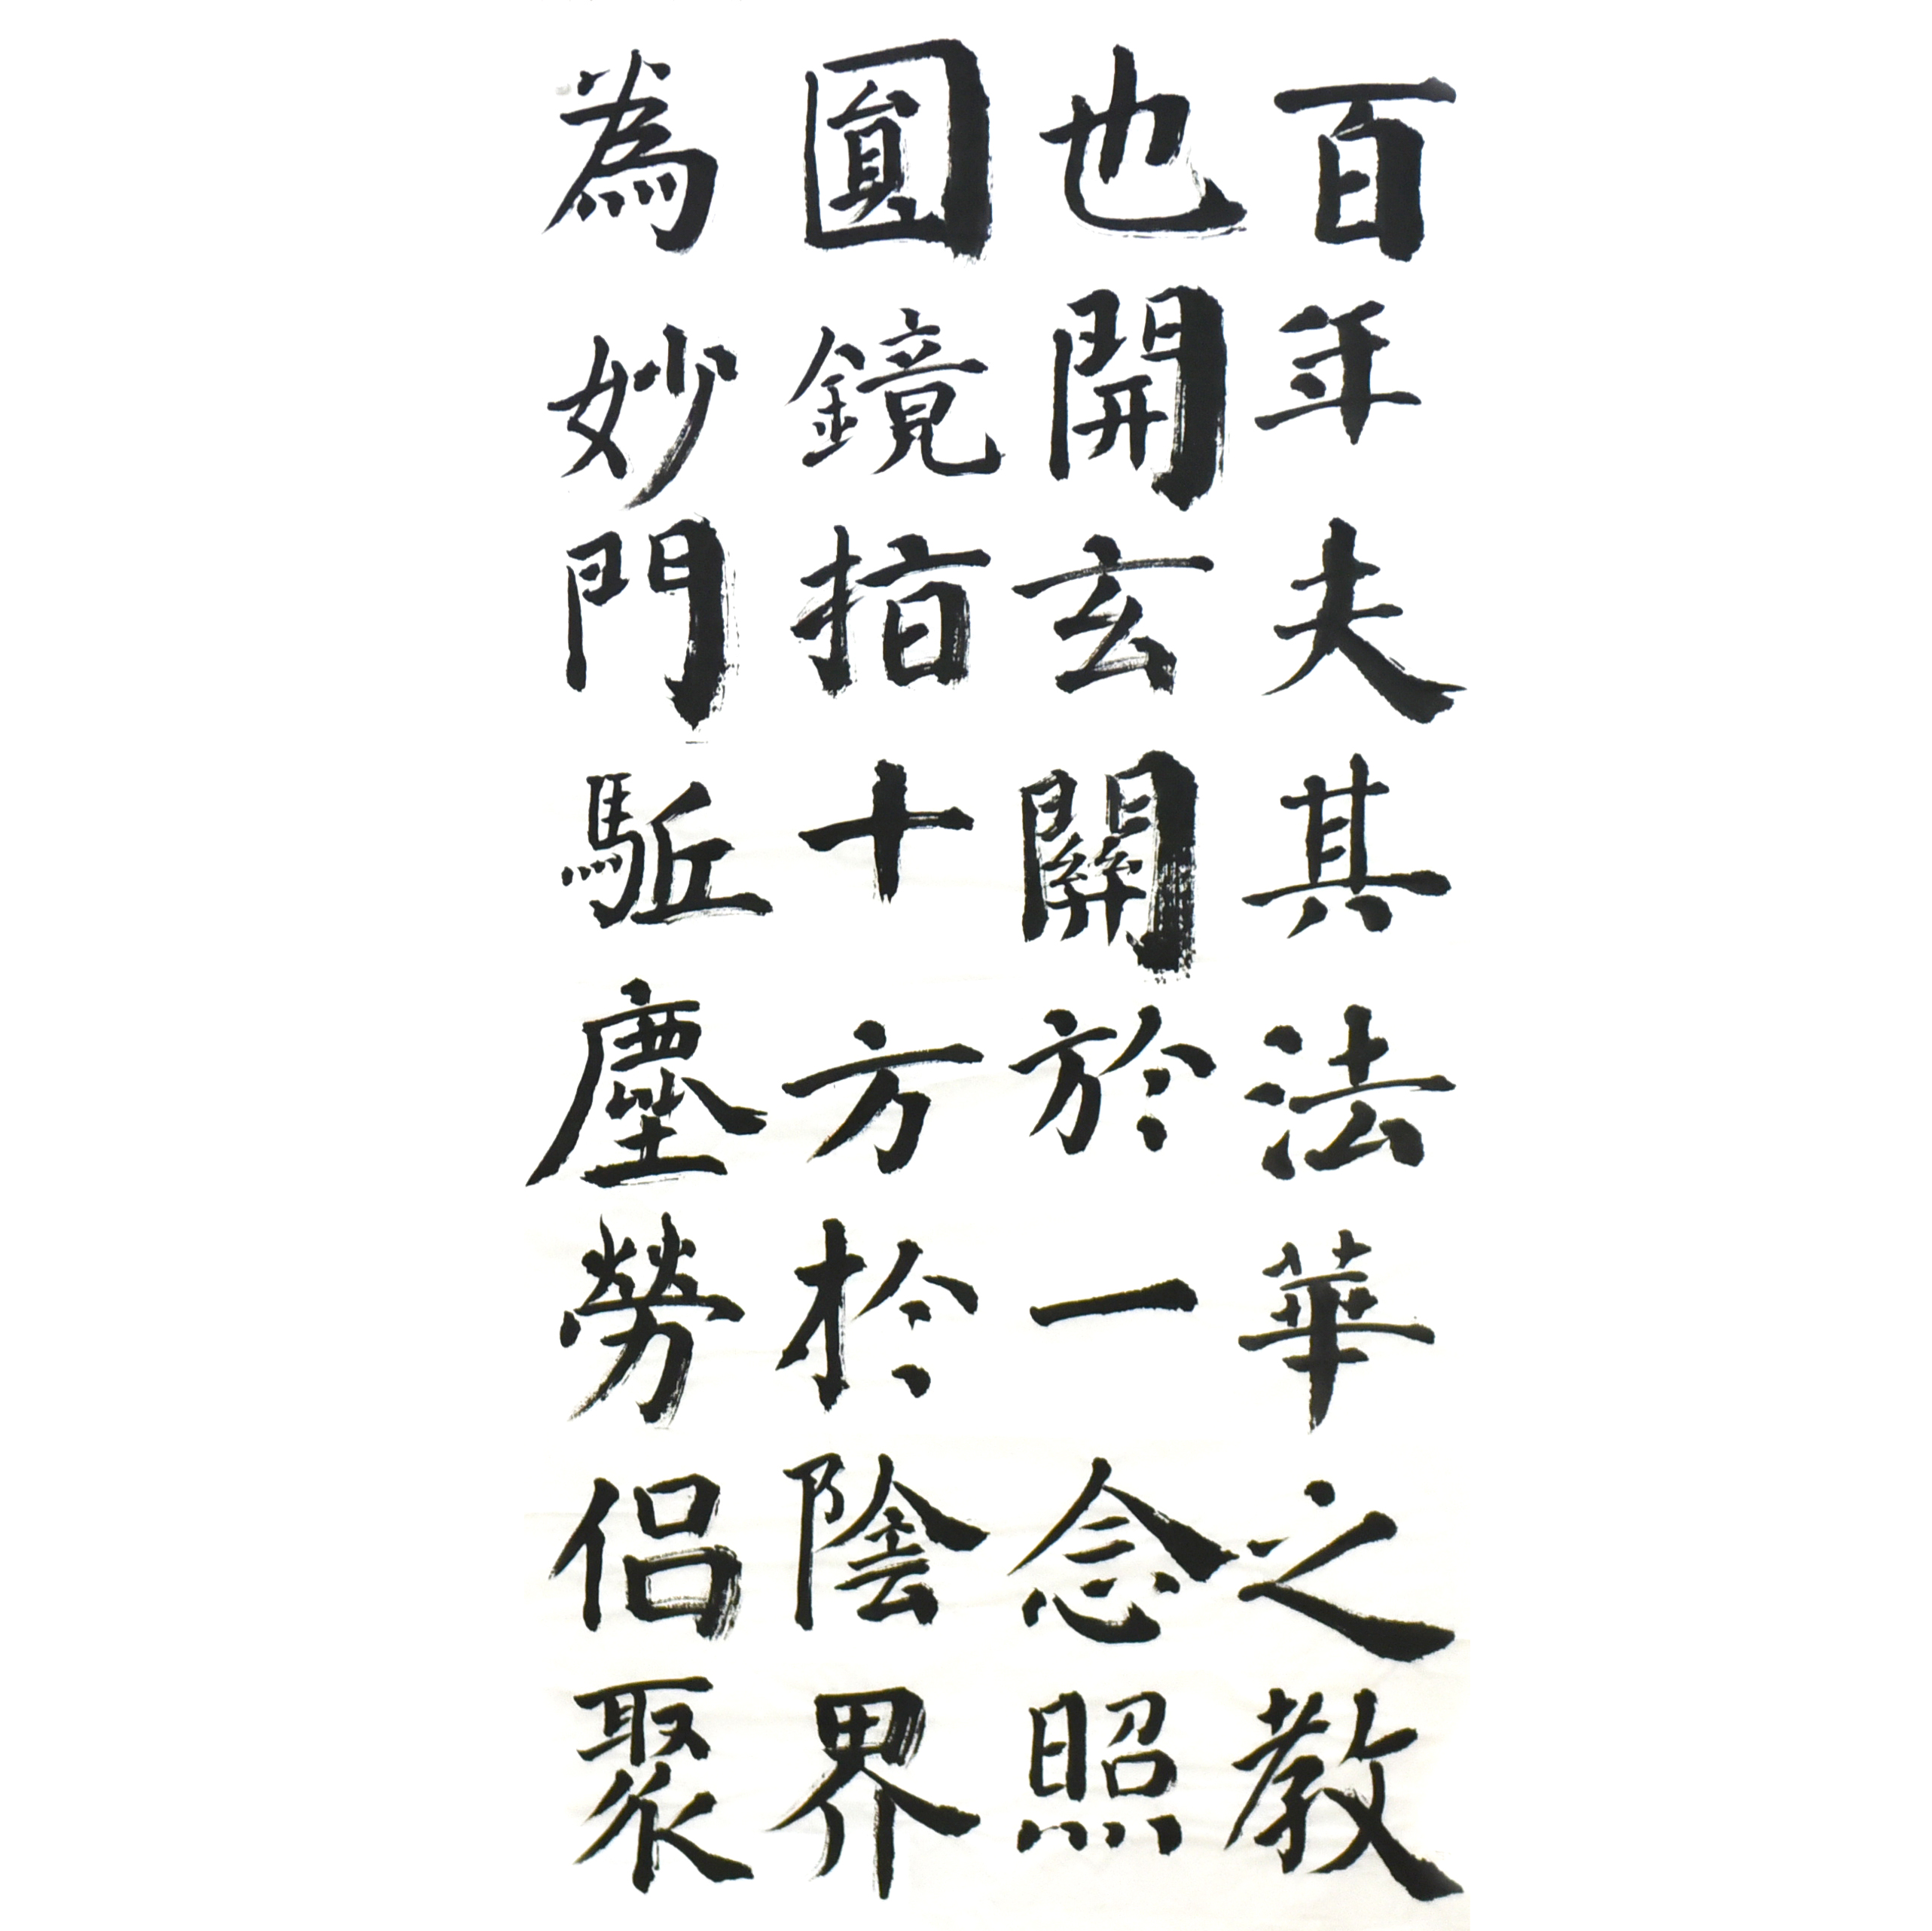 百年夫其法華之教
也開玄關於一念照
圓鏡指十方扵陰界
為妙門駈塵勞侶聚